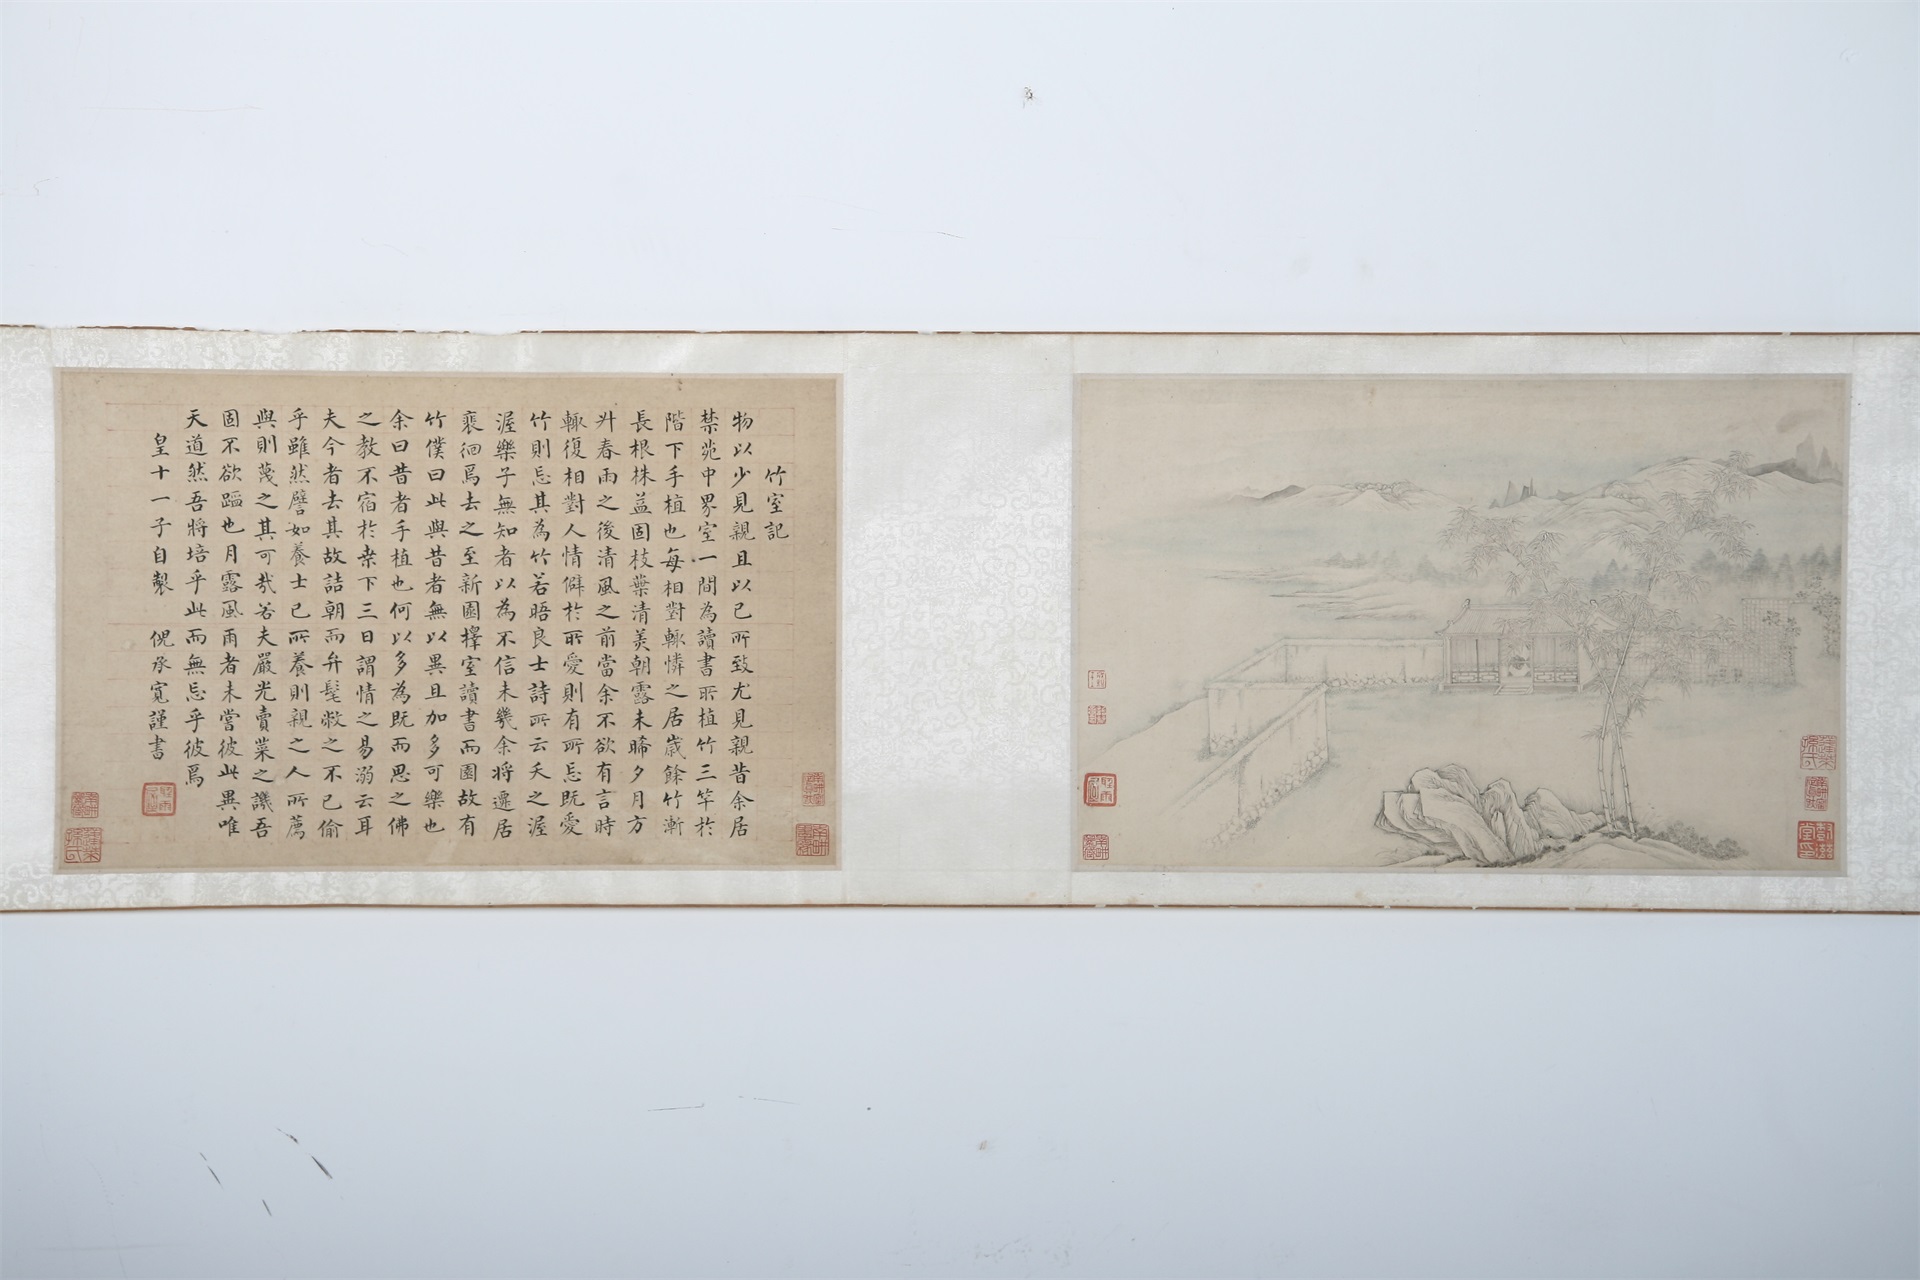 竹室記
物以少見親且以己所致尤見親昔余居
禁苑中界室一間為讀書所植竹三竿於
階下手植也每相對輒憐之居歲餘竹漸
長根株益固枝葉清美朝露未晞夕月方
升春雨之後清風之前當余不欲有言時
輒復相對人情僻於所愛則有所忘既愛
竹則忘其為竹若晤良士詩所云夭之渥
渥樂子無知者以為不信未幾余將遷居
裵徊焉去之至新園擇室讀書而園故有
竹僕曰此與昔者無以異且加多可樂也
余曰昔者手植也何以多為既而思之佛
之教不宿於桒下三日謂情之易溺云耳
夫今者去其故詰朝而弁髦敝之不已偷
乎雖然譬如養士已所養則親之人所薦
與則蔑之其可哉若夫嚴光賣菜之譏吾
固不欲蹈也月露風雨者未嘗彼此異唯
天道然吾將培乎此而無忘乎彼焉
皇十一子自製 倪承寬謹書